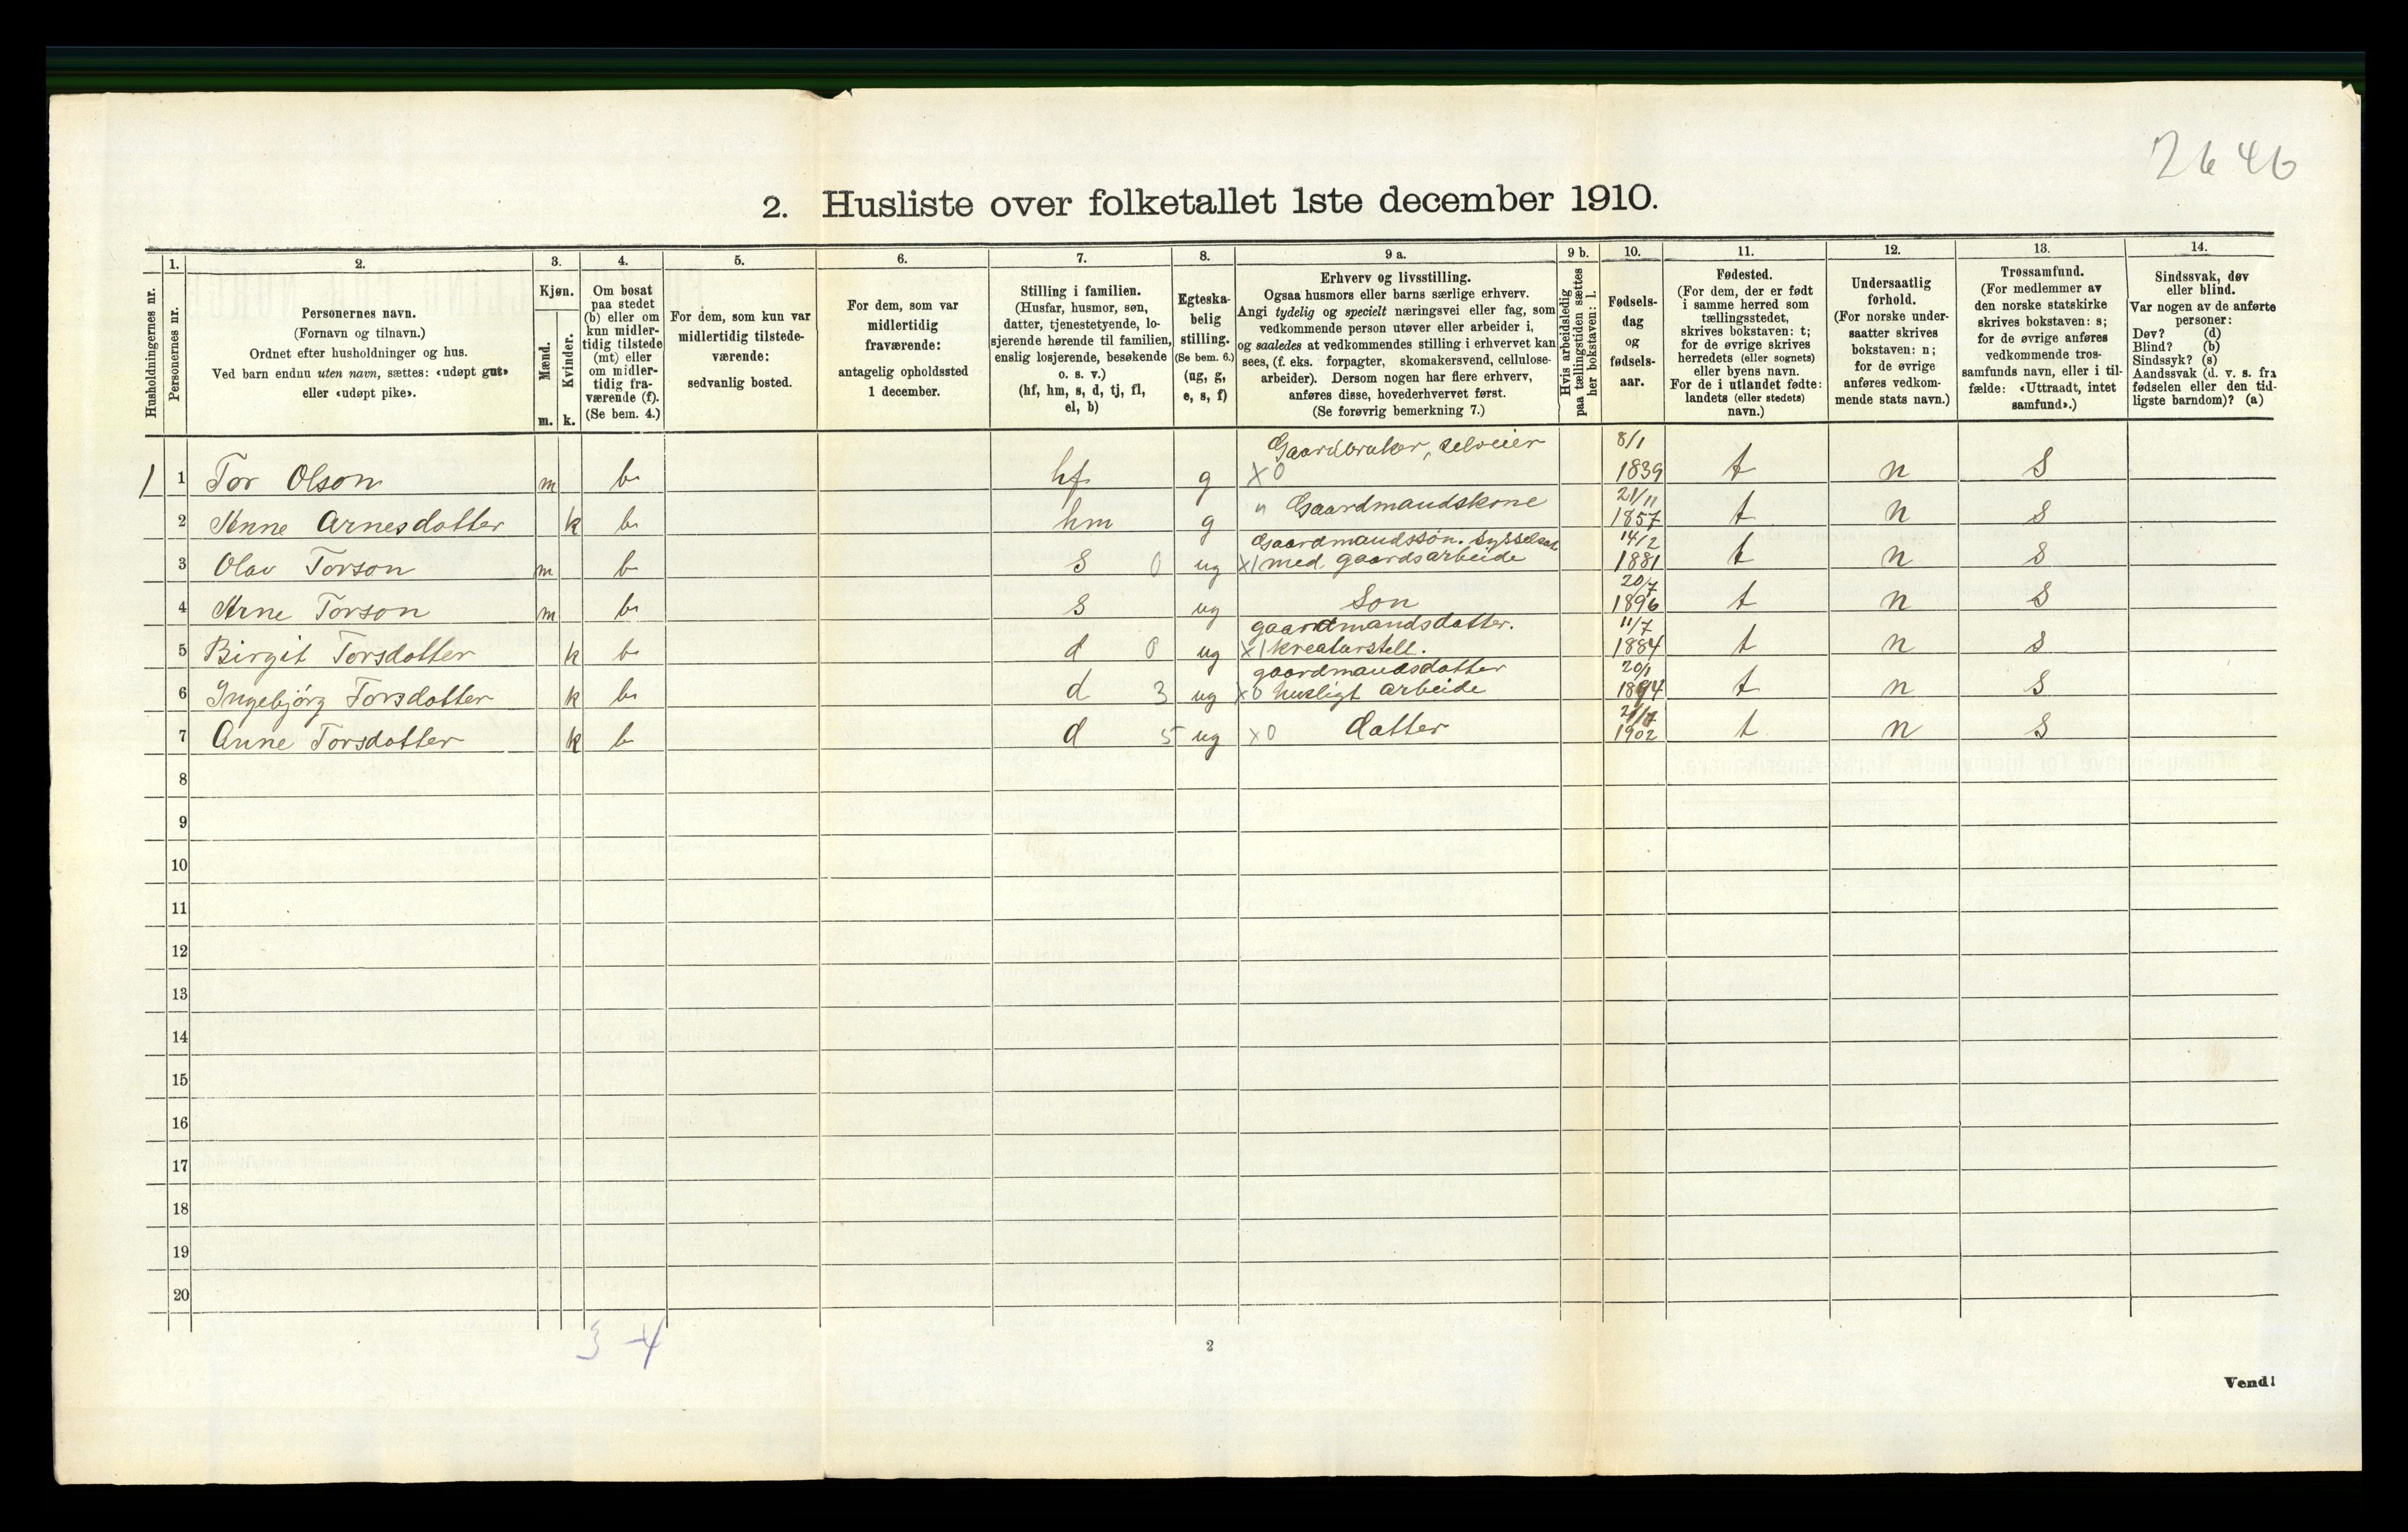 2646
2. Husliste over folketallet 1ste december 1910.
Husholdningernes nr.
1.
Personernes nr.
2.
Personernes navn.
(Fornavn og tilnavn.)
Ordnet efter husholdninger og hus.
Ved barn endnu uten navn, sættes: «udøpt gut»
eller «udøpt pike».
3.
Kjøn.
Mænd.
m.
Kvinder.
k.
4.
Om bosat
paa stedet
(b) eller om
kun midler-
tidig tilstede
(mt) eller
om midler-
tidig fra-
værende (f).
(Se bem. 4.)
5.
For dem, som kun var
midlertidig tilstede-
værende:
sedvanlig bosted.
6.
For dem, som var
midlertidig
fraværende:
antagelig opholdssted
1 december.
7.
Stilling i familien.
(Husfar, husmor, søn,
datter, tjenestetyende, lo-
sjerende hørende til familien,
enslig losjerende, besøkende
o. s. v.)
(hf, hm, s, d, tj, fl,
el, b)
8.
Egteska-
belig
stilling.
(Se bem. 6.)
(ug, g,
e, s, f)
9 a.
Erhverv og livsstilling.
Ogsaa husmors eller barns særlige erhverv.
Angi tydelig og specielt næringsvei eller fag, som
vedkommende person utøver eller arbeider i,
og saaledes at vedkommendes stilling i erhvervet kan
sees, (f. eks. forpagter, skomakersvend, cellulose-
arbeider). Dersom nogen har flere erhverv,
anføres disse, hovederhvervet først.
(Se forøvrig bemerkning 7.)
9 b.
Hvis arbeidsledig
paa tællingstiden sættes
her bokstaven: l.
10.
Fødsels-
dag
og
fødsels-
aar.
11.
Fødested.
(For dem, der er født
i samme herred som
tællingsstedet,
skrives bokstaven: t;
for de øvrige skrives
herredets (eller sognets)
eller byens navn.
For de i utlandet fødte:
landets (eller stedets)
navn.)
12.
Undersaatlig
forhold.
(For norske under-
saatter skrives
bokstaven: n;
for de øvrige
anføres vedkom-
mende stats navn.)
13.
Trossamfund.
(For medlemmer av
den norske statskirke
skrives bokstaven: s;
for de øvrige anføres
vedkommende tros-
samfunds navn, eller i til-
fælde: «Uttraadt, intet
samfund».)
14.
Sindssvak, døv
eller blind.
Var nogen av de anførte
personer:
Døv? (d)
Blind? (b)
Sindssyk? (s)
Aandssvak (d. v. s. fra
fødselen eller den tid-
ligste barndom)? (a)
Gaardbruker, selveier 8/1
1 1 Tor Olson m b hf g x0 1839 t n s
21/11
2 Anne Arnesdatter k b hm g " Gaardmandskone 1857 t n s
Gaardmandssøn. Sysselsat 14/2
3 Olav Torson m b s 0 ug x1 med gaardsarbeide 1881 t n s
20/7
4 Arne Torson m b s ug Son 1896 t n s
gaardmandsdatter. 11/7
5 Birgit Torsdatter k b d 0 ug x1 kreaturstell. 1884 t n s
gaardmandsdatter 20/1
6 Ingebjörg Torsdatter k b d 3 ug x0 husligt arbeide 1894 t n s
21/7
7 Anne Torsdatter k b d 5 ug x0 datter 1902 t n s
8
9
10
11
12
13
14
15
16
17
18
19
20
3 - 4
2
Vend!